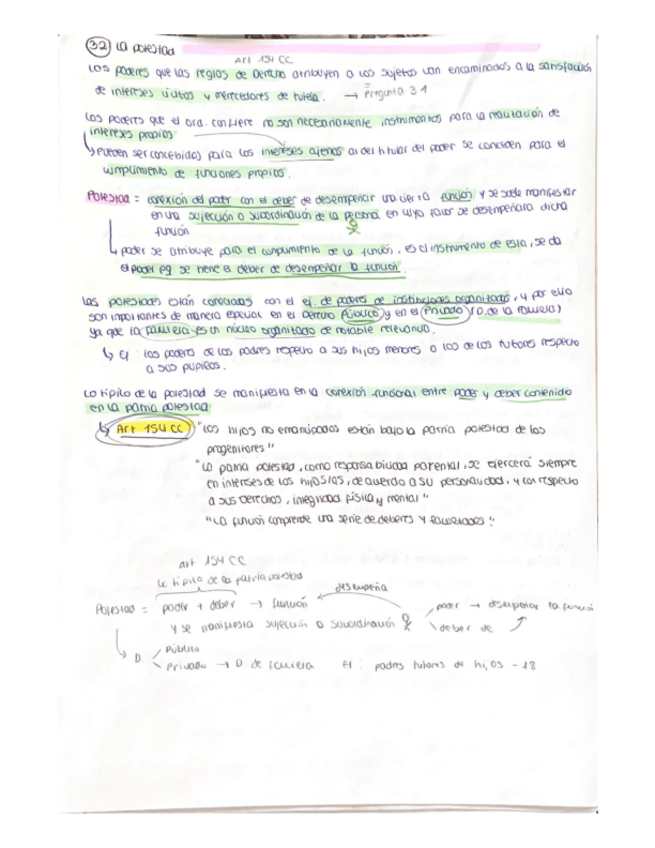 32 La potestad
Art 154 CC
Los poderes que las reglas de Derecho atribuyen a los sujetos van encaminados a la satisfacción
de intereses lícitos y merecedores de tutela. → Pregunta 31
Los poderes que el ord. confiere no son necesariamente instrumentos para la realización de
intereses propios
↳ Pueden ser concebidos para los intereses ajenos al del titular del poder se conciden para el
cumplimiento de funciones propias.
Potestad = conexión del poder con el deber de desempeñar una cierta función y se suele manifestar
en una sujeción o subordinación de la persona en cuyo favor se desempeñará dicha
función
↳ poder se atribuye para el cumplimiento de la función, es el instrumento de esta, se da
el poder pq se tiene el deber de desempeñar la función.
Las potestades están conectadas con el ej. de poderes de instituciones organizadas, y por ello
son importantes de manera especial en el Derecho Público y en el Privado (D. de la familia)
ya que la familia es un núcleo organizado de notable relevancia.
↳ Ej: los poderes de los padres respecto a sus hijos menores o los de los tutores respecto
a sus pupilos.
Lo típico de la potestad se manifiesta en la conexión funcional entre poder y deber contenido
en la patria potestad
↳ Art 154 CC "Los hijos no emancipados están bajo la patria potestad de los
progenitores"
"La patria potestad, como responsabilidad parental, se ejercerá siempre
en interés de los hijos/as, de acuerdo a su personalidad, y con respeto
a sus derechos, integridad física y mental"
"La función comprende una serie de deberes y facultades".
art 154 CC
Lo típico de la patria potestad
desempeña
Potestad = poder + deber → función
poder → desempeñar la función
y se manifiesta sujeción o subordinación
deber de
↳ D
Público
Privado → D de familia Ej: padres tutores de hijos -18